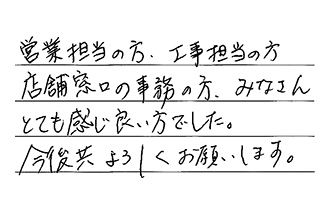 営業担当の方、工事担当の方
店舗窓口の事務の方、みなさん
とても感じ良い方でした。
今後共よろしくお願いします。